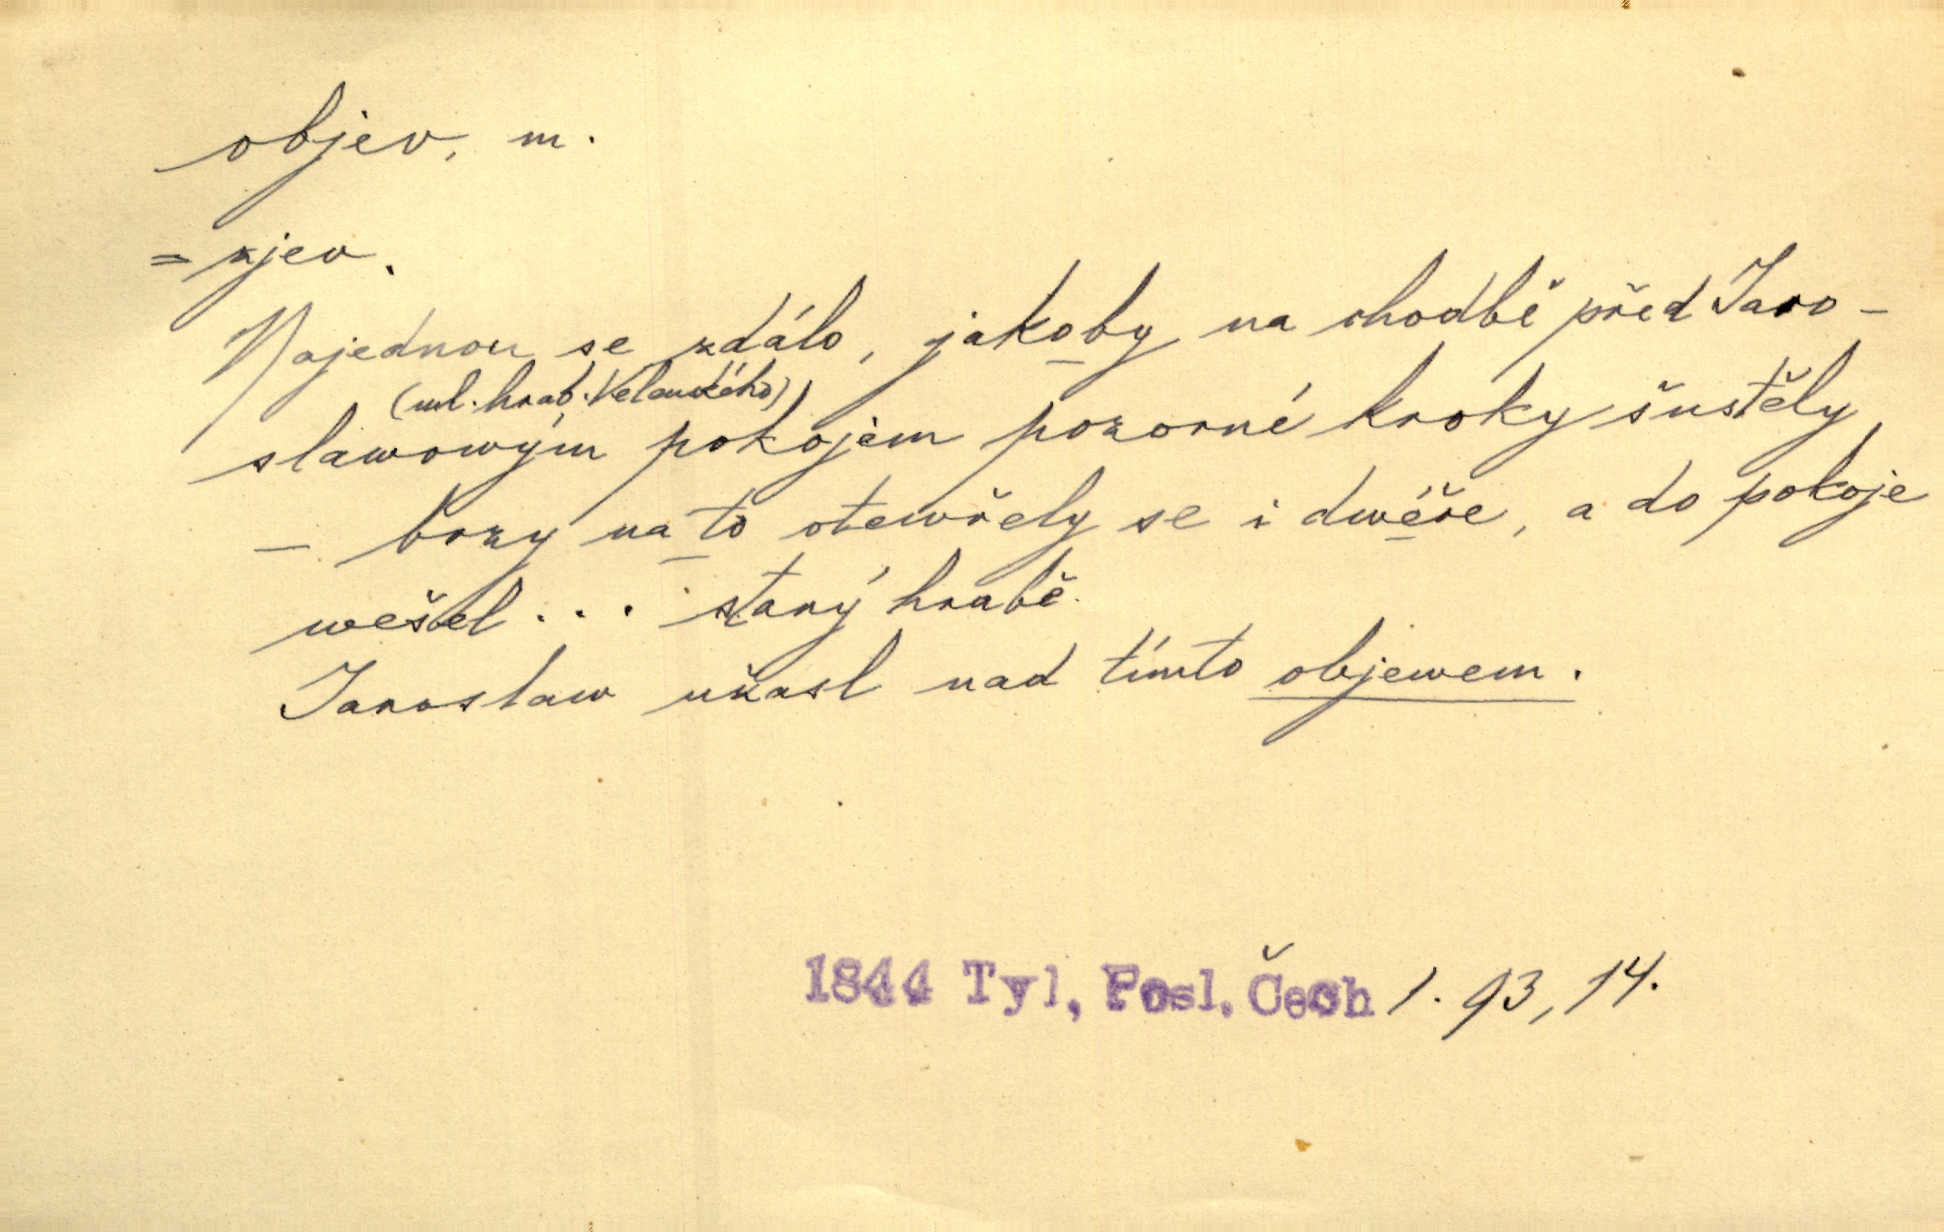 objev, m.
= zjev.
Najednou se zdálo, jakoby na chodbě před Jaro-
(ml. hrab. Velenského)
slawowým pokojem pozorné kroky šustěly
– brzy na to otewřely se i dwéře, a do pokoje
wešel ... starý hrabě.
Jaroslaw užasl nad tímto objewem.
1844 Tyl, Posl. Čech 1. 93, 14.